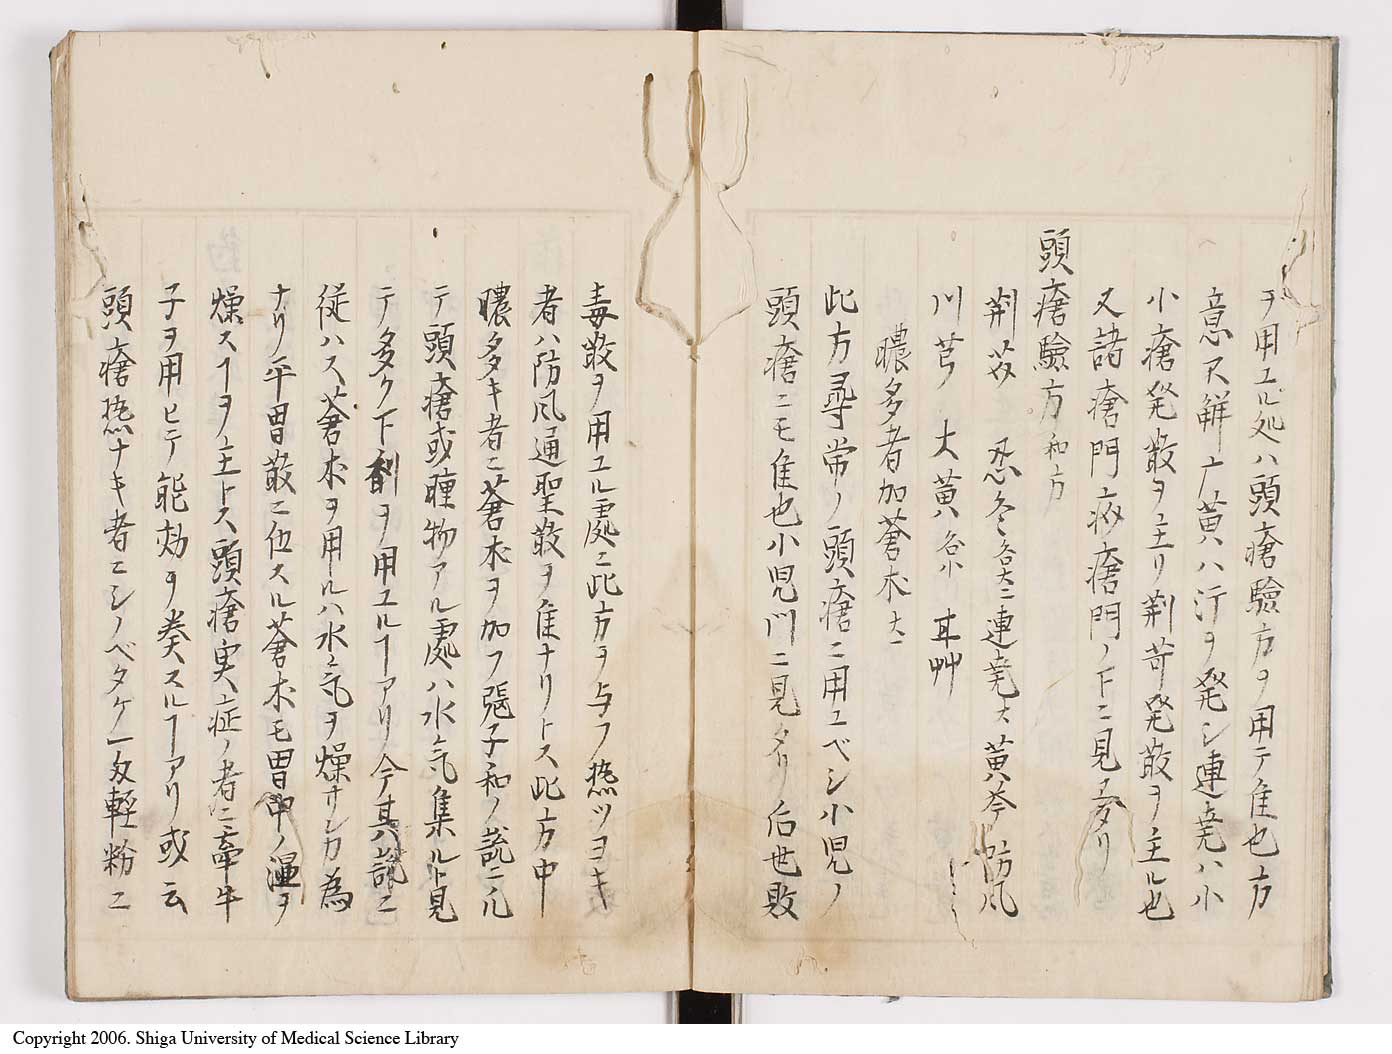 ヲ用ユル処ハ頭瘡験方ヲ用テ隹也方
意ハ觧广黄ハ汗ヲ発シ連堯ハ小
小瘡発散ヲ主リ荆芥発散ヲ主ル也
又諸瘡門疥瘡門ノ下ニ見ユタリ
頭瘡驗方 和方
荆芥 忍冬各大二連堯大黄芩防風
川芎 大黄各小 甘艸
膿多者加蒼朮大一
此方尋常ノ頭瘡ニ用ユベシ小児ノ
頭瘡ニモ隹也小児門ニ見タリ后世敗
毒散ヲ用ユル處ニ此方ヲ与フ热ツヨキ
者ハ防風通聖散ヲ隹ナリトス此方中
膿多キ者ニ蒼朮ヲ加フ張子和ノ説ニ凢
テ頭瘡或腫物アル處ハ水気集ルト見
テ多ク下剤ヲ用ユルヿアリ今其説ニ
従ハス蒼朮ヲ用ルハ水気ヲ燥サンカ為
ナリ平胃散ニ伍スル蒼朮モ胃中ノ湿ヲ
燥スヿヲ主トス頭瘡実症ノ者ニ牽牛
子ヲ用ヒテ能効ヲ奏スルヿアリ或云
頭瘡热ナキ者ニシノベタケ一匁軽粉ニ
Copyright 2006. Shiga University of Medical Science Library